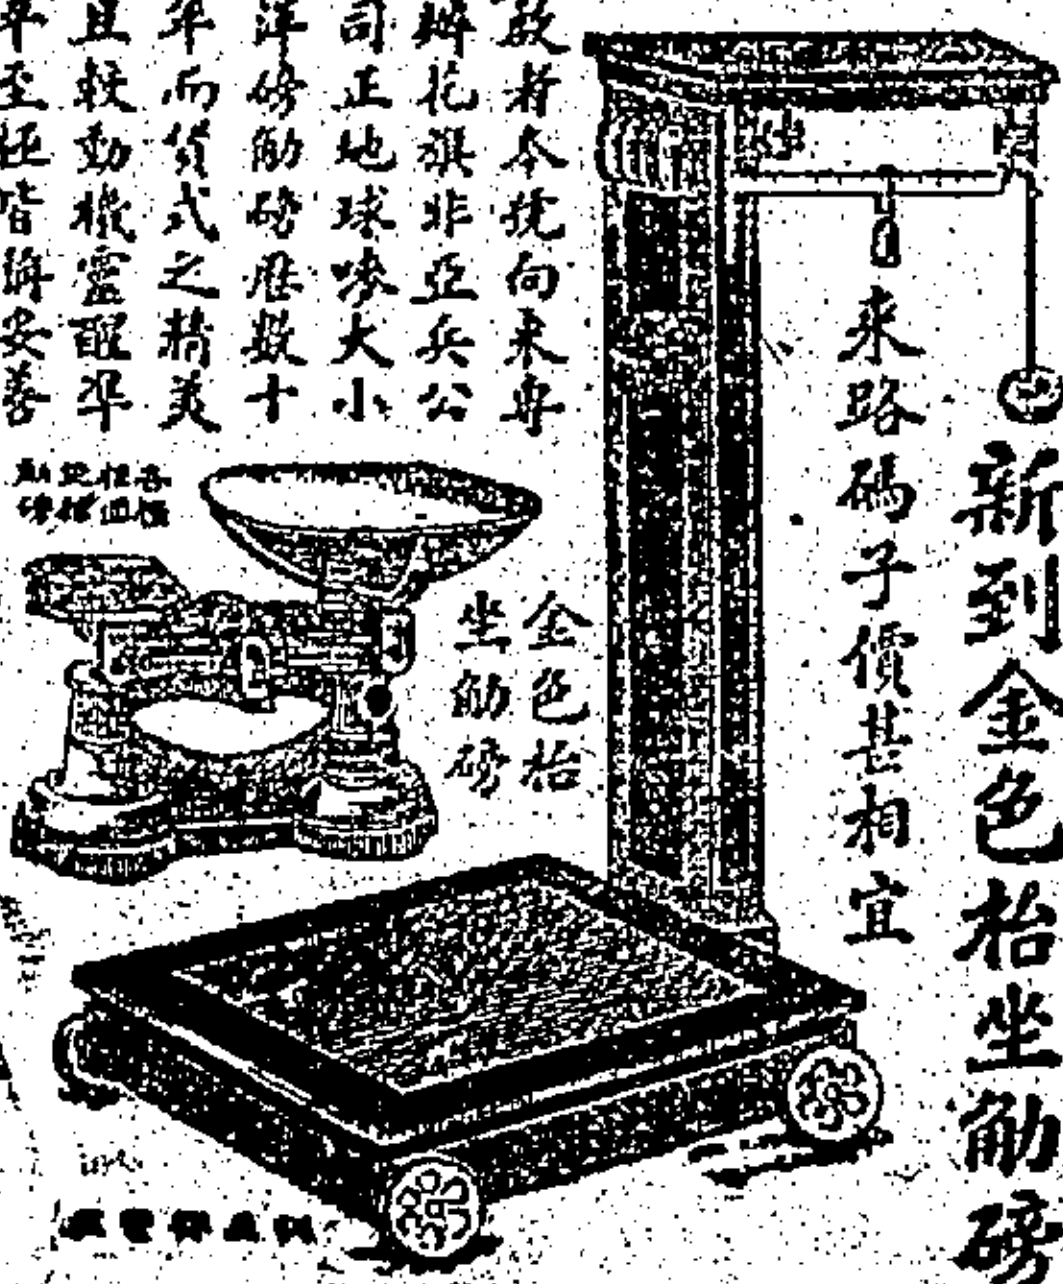 新到金色枱坐觔磅
來路碼子價甚相宜
啟者本號向來專
辦花旗非亞兵公
司正地球嘜大小
洋磅觔磅歷數十
年而貨式之精美
且較動機靈醒準
至極皆稱妥善
金色枱
坐觔磅